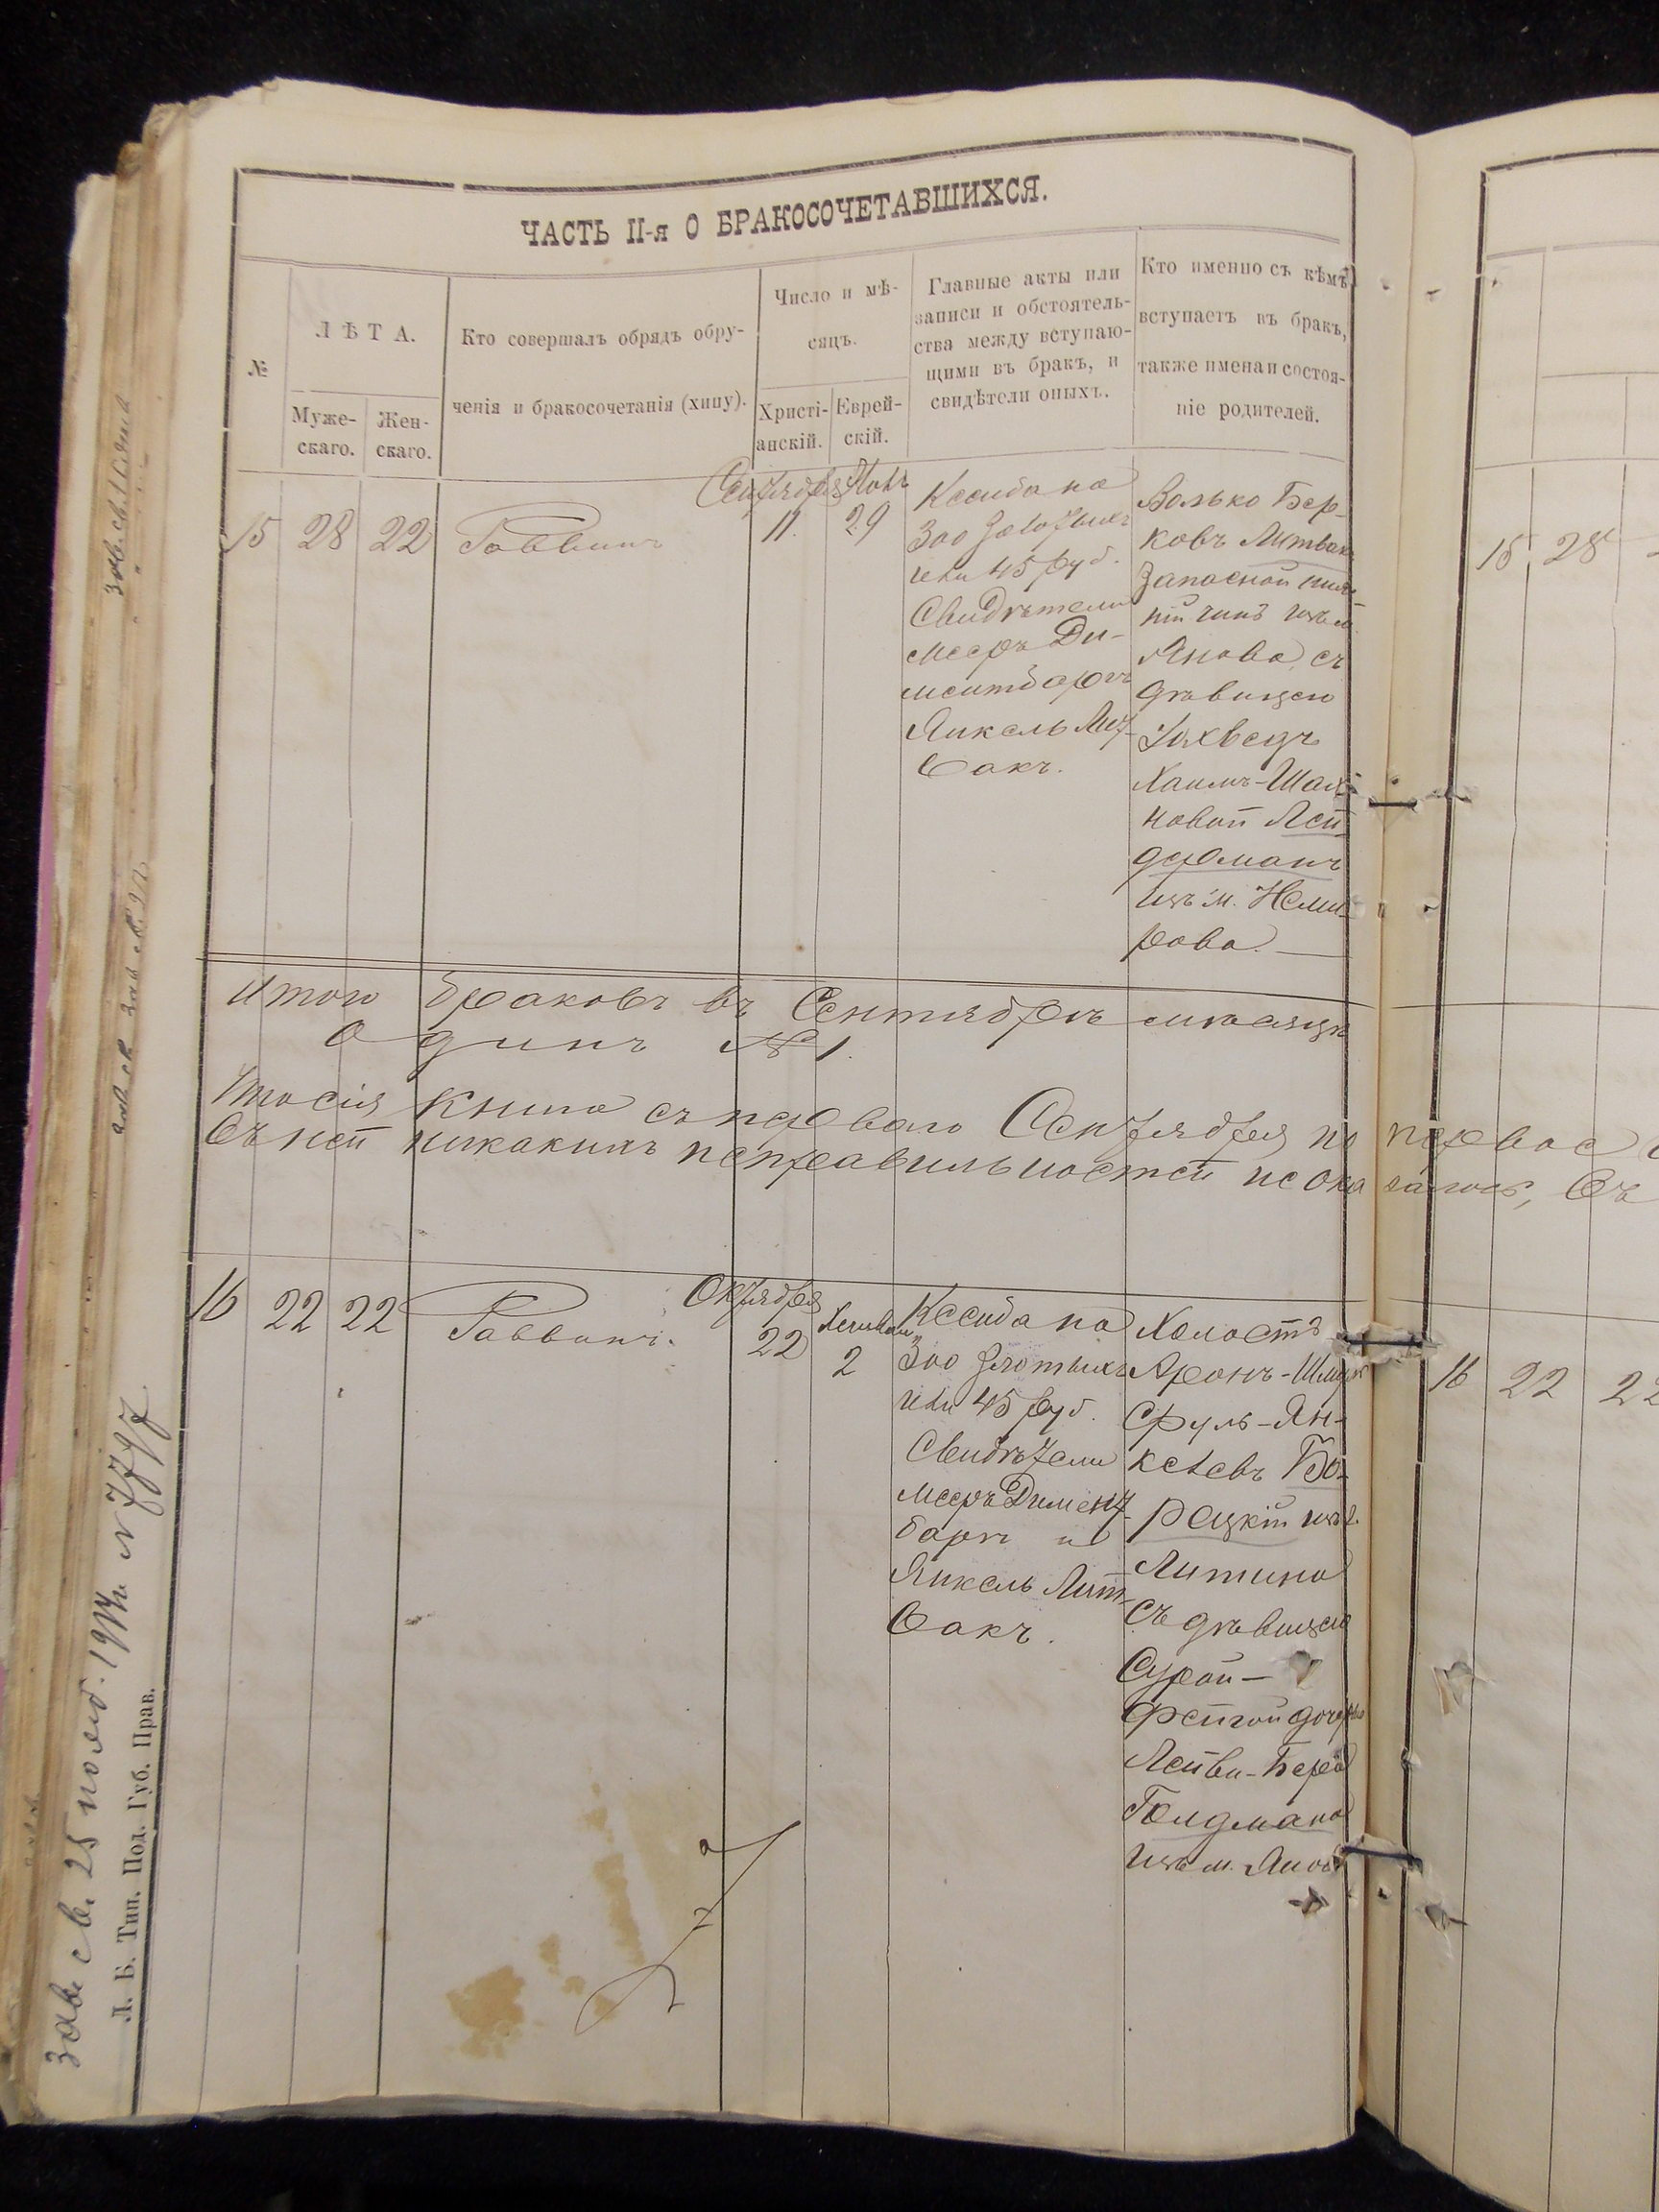 ЧАСТЬ II-я О БРАКОСОЧЕТАВШИХСЯ.
№
ЛѢТА.
Муже-
скаго.
Жен-
скаго.
Кто совершалъ обрядъ обру-
ченія и бракосочетанія (хипу).
Число и мѣ-
сяцъ.
Христі-
анскій.
Еврей-
скій.
Главные акты или
записи и обстоятель-
ства между вступаю-
щими въ бракъ, и
свидѣтели оныхъ.
Кто именно съ кѣмъ
вступаетъ въ бракъ,
также имена и состоя-
ніе родителей.
15
28
22
Раввинъ
Сентября
11.
29
Кссиба на
300 золотыхъ
или 45 руб.
Свидѣтели
Мееръ Ди-
ментбаргъ
Янкель Лит-
вакъ.
Волько Бер-
ковъ Литвакъ
Запасной ниж-
ній чинъ изъ м.
Янова съ
дѣвицею
Хаимъ-Шах-
новой Лей-
дерманъ
изъ м. Неми-
рова.
Итого браковъ въ Сентябрѣ мѣсяцѣ
Одинъ № 1.
Что сія книга съ перваго Сентября по первое
въ ней никакихъ неправильностей не оказалось, въ
16
22
22
Раввинъ.
Октября
22
Хешванъ
2
Кссиба на
300 злотыхъ
или 45 руб.
Свидѣтели
Мееръ Димент-
баргъ и
Янкель Лит-
вакъ.
Холостъ
Аронъ-Шмуль
Сруль-Ян-
келевъ Бо-
рецкій изъ г.
Литина
съ дѣвицею
Сурой-
Фейгой дочерью
Лейви-Бера
Голдмана
изъ м. Янова
15
28
16
22
22
Зав. св. 25 нояб. 1914 г. №
Л. Б. Тип. Под. Губ. Прав.